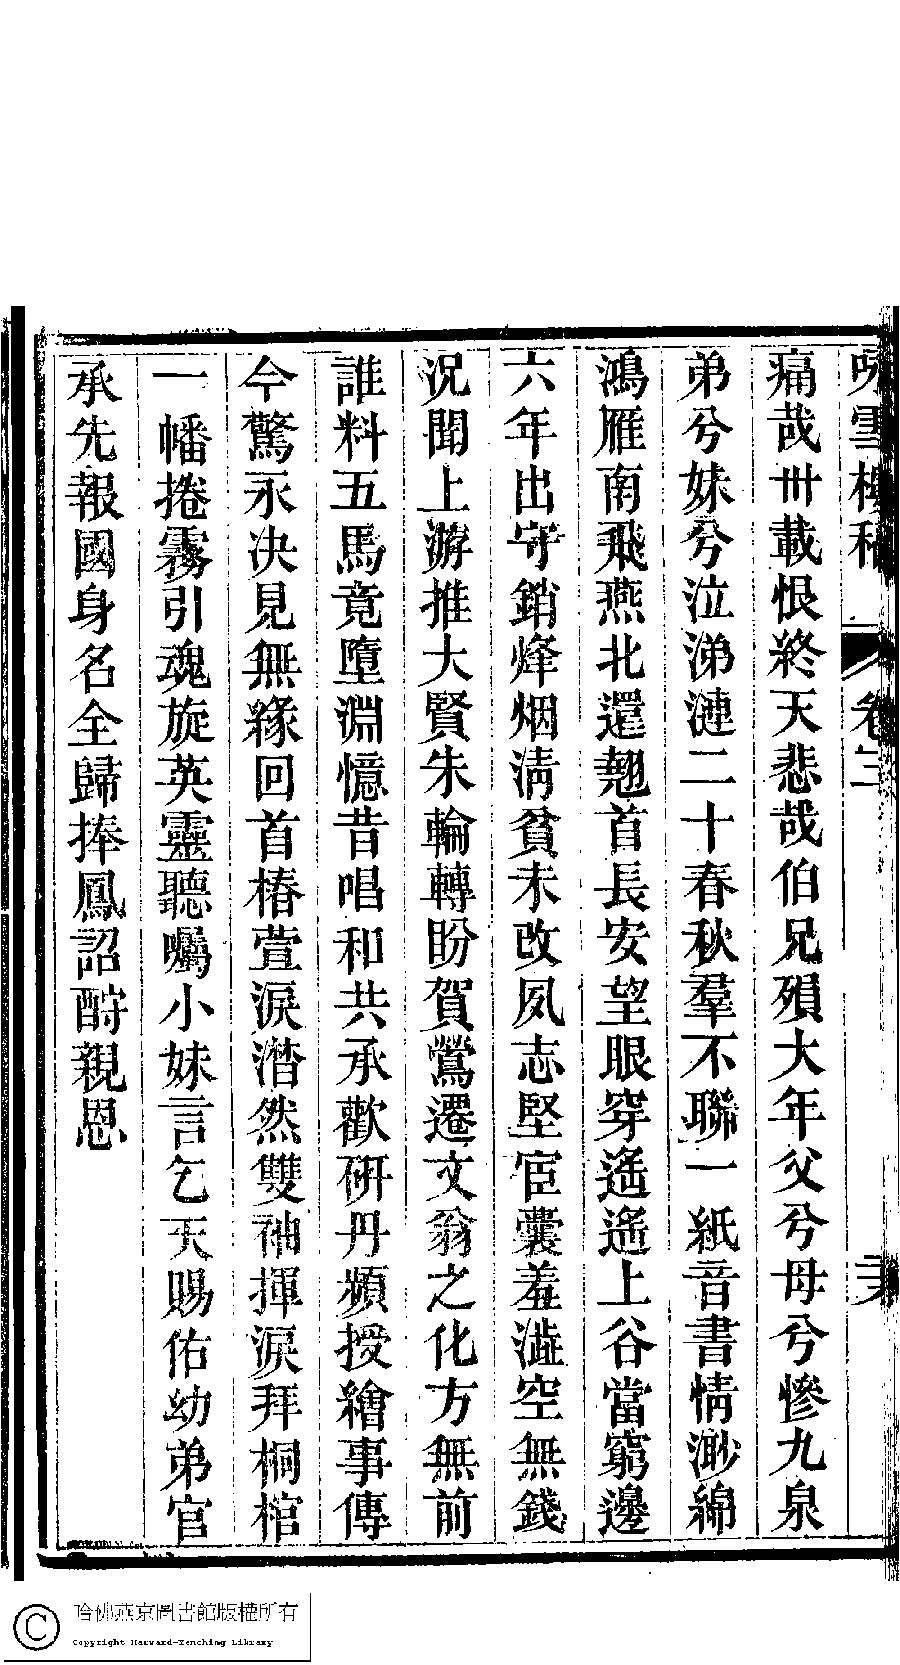 雪樓稿 卷三
痛哉卅載恨終天悲哉伯兄殞大年父兮母兮慘九泉
弟兮妹兮泣涕漣二十春秋羣不聯一紙音書情渺綿
鴻雁南飛燕北還翹首長安望眼穿遙遙上谷當窮邊
六年出守銷烽烟清貧未改夙志堅宦囊羞澁空無錢
況聞上游推大賢朱輪轉盼賀鶯遷文翁之化方無前
誰料五馬竟墮淵憶昔唱和共承歡硏丹頻授繪事傳
今驚永決見無緣回首椿萱淚潸然雙袖揮淚拜桐棺
一幡捲霧引魂旋英靈聽囑小妹言乞天賜佑幼弟官
承先報國身名全歸捧鳳詔酹親恩
哈佛燕京圖書館版權所有
Copyright Harvard-Yenching Library